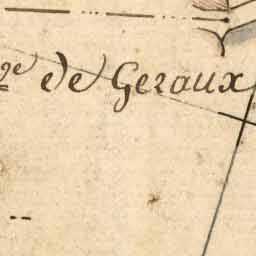 de Geraux